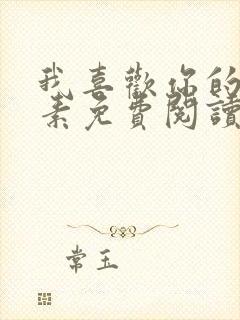 我喜歡你的
素免費閱讀
常玉